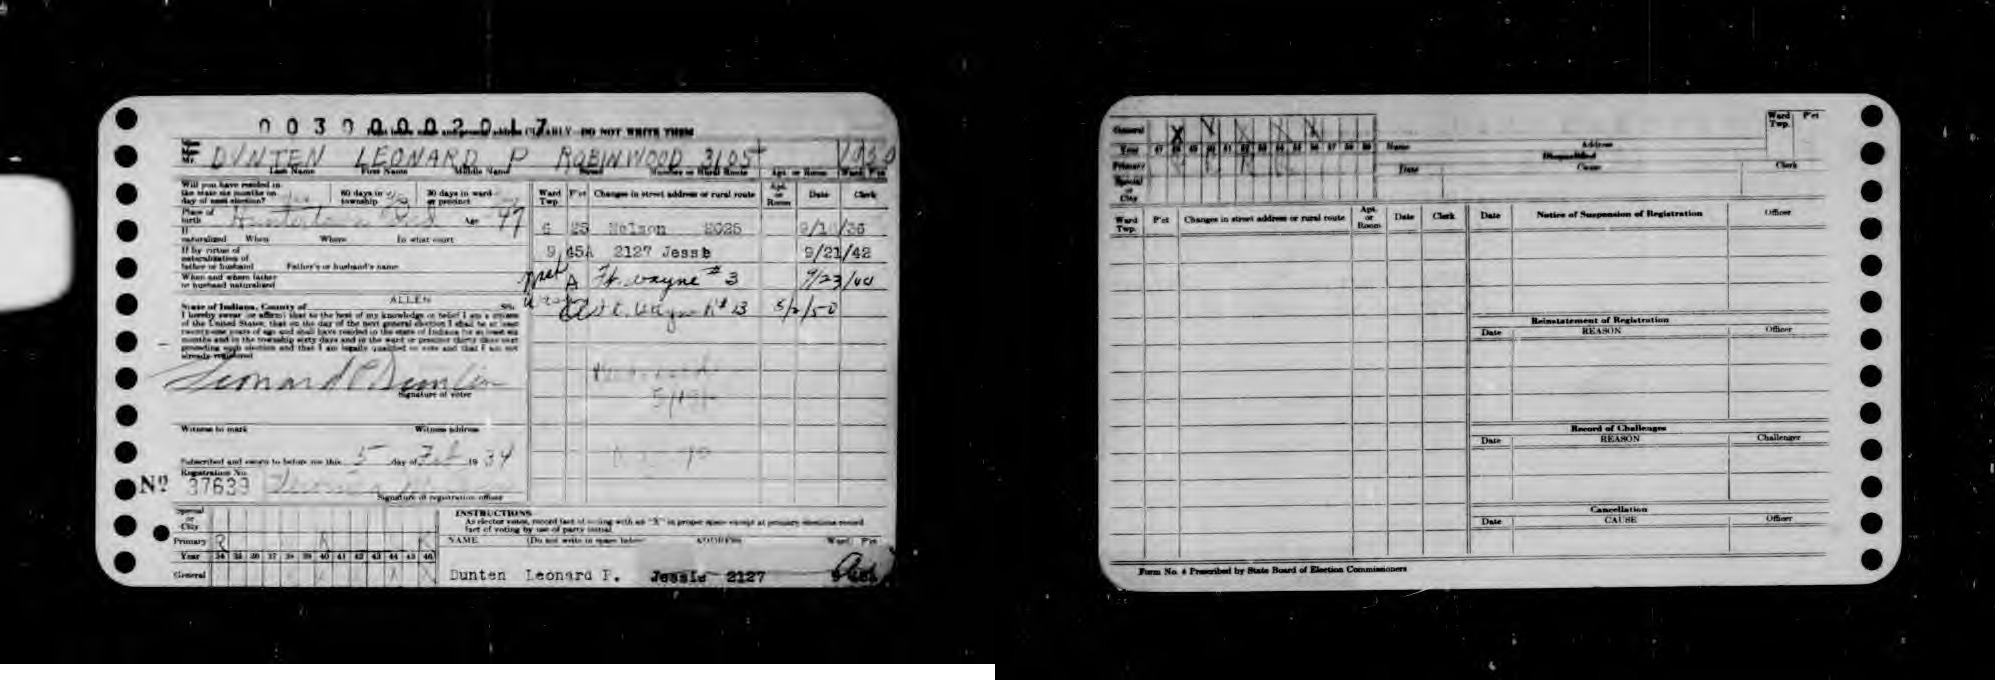 00300002017
CLEARLY—DO NOT WRITE THEM
Mr. DUNTEN LEONARD P ROBINWOOD 3105
Last Name First Name Middle Name Street Number or Rural Route Apt. or Room Ward P'ct
Will you have resided in
the state six months on
day of next election? 60 days in
township 30 days in ward
or precinct
Place of
birth Huntertown Ind Age 47
If
naturalized When Where In what court
If by virtue of
naturalization of
father or husband Father's or husband's name
When and where father
or husband naturalized
ALLEN
State of Indiana, County of SS.
I hereby swear (or affirm) that to the best of my knowledge or belief I am a citizen
of the United States; that on the day of the next general election I shall be at least
twenty-one years of age and shall have resided in the state of Indiana for at least six
months and in the township sixty days and in the ward or precinct thirty days next
preceding such election and that I am legally qualified to vote and that I am not
already registered
Leonard P Dunten
Signature of voter
Witness to mark Witness address
Subscribed and sworn to before me this 5 day of Feb 19 34
Registration No.
No 37633
Signature of registration officer
Ward
Twp. P'ct Changes in street address or rural route Apt.
or
Room Date Clerk
6 25 Nelson 2025 36
9 45A 2127 Jessie 9/21/42
A Ft. Wayne #3 9/23/44
Wayne 13 5/2/50
Special
or
City
Primary R
Year 34 35 36 37 38 39 40 41 42 43 44 45 46
General
INSTRUCTIONS
As elector votes, record fact of voting with an "X" in proper space except at primary elections record
fact of voting by use of party initial.
NAME (Do not write in space below) ADDRESS Ward P'ct
Dunten Leonard P. Jessie 2127
General X
Year 47 48 49 50 51 52 53 54 55 56 57 58 59
Primary
Special
or
City
Name Address
Disqualified
Date Cause Clerk
Ward
Twp. P'ct
Ward
Twp. P'ct Changes in street address or rural route Apt.
or
Room Date Clerk
Date Notice of Suspension of Registration Officer
Reinstatement of Registration
Date REASON Officer
Record of Challenges
Date REASON Challenger
Cancellation
Date CAUSE Officer
Form No. 4 Prescribed by State Board of Election Commissioners